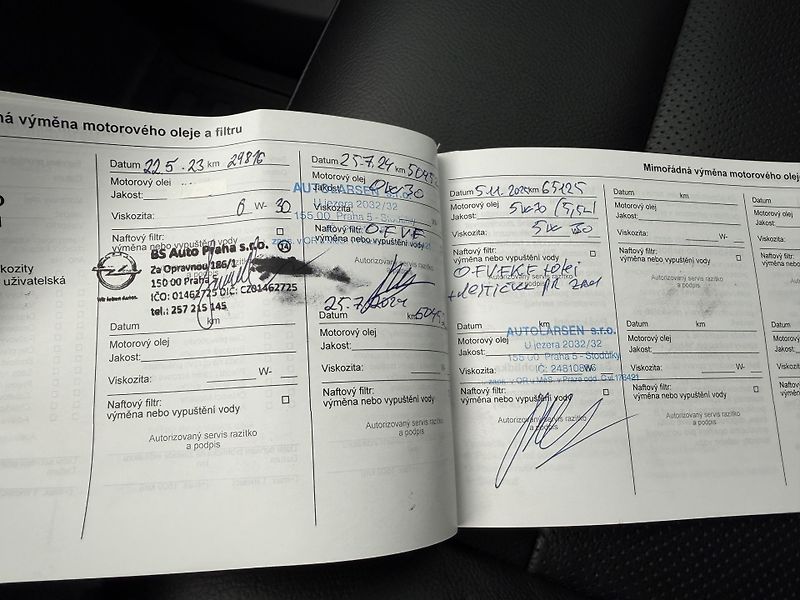 ná výměna motorového oleje a filtru
kozity
uživatelská
Datum 22.5.23 km 29816
Motorový olej
Jakost:
Viskozita: 0 W- 30
Naftový filtr:
výměna nebo vypuštění vody
BS Auto Praha s.r.o. 14
Za Opravnou 186/1
150 00 Praha 5
IČO: 01462725 DIČ: CZ01462725
tel.: 257 215 145
Datum km
Motorový olej
Jakost:
Viskozita: W-
Naftový filtr:
výměna nebo vypuštění vody
Autorizovaný servis razítko
a podpis
Datum 25.7.24 km
Motorový olej
Jakost: 0W30
AUTOLARSEN
U jezera 2032/32
Viskozita:
155 00 Praha 5 - Stodůlky
Naftový filtr: O.F.V.F
výměna nebo vypuštění vody
Autorizovaný
25.7.2024
Datum km
Motorový olej
Jakost:
Viskozita: W-
Naftový filtr:
výměna nebo vypuštění vody
Autorizovaný servis razítko
a podpis
Mimořádná výměna motorového oleje
Datum 5.11.2025 km 65125
Motorový olej
Jakost: 5W30 (5,5L)
Viskozita: 5W
Naftový filtr:
výměna nebo vypuštění vody
O.F.V.F.K.F + olej
Datum km
AUTOLARSEN s.r.o.
Motorový olej
U jezera 2032/32
Jakost:
155 00 Praha 5 - Stodůlky
Viskozita: W-
Naftový filtr:
výměna nebo vypuštění vody
Autorizovaný servis razítko
a podpis
Datum km
Motorový olej
Jakost:
Viskozita: W-
Naftový filtr:
výměna nebo vypuštění vody
Autorizovaný servis razítko
a podpis
Datum km
Motorový olej
Jakost:
Viskozita: W-
Naftový filtr:
výměna nebo vypuštění vody
Autorizovaný servis razítko
a podpis
Datum
Motorový
Jakost:
Viskozita:
Naftový
výměna
Datum
Motorový
Jakost:
Viskozita:
Naftový
výměna